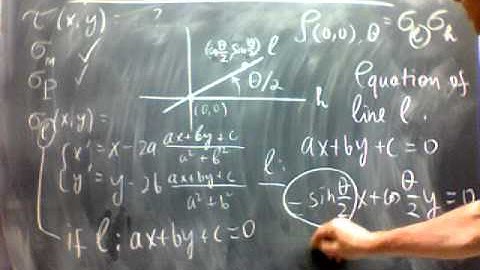 τ(x,y) = ?
σ_m ✓
σ_P ✓
σ_ℓ(x,y) =
{ x' = x - 2a (ax+by+c)/(a²+b²)
y' = y - 2b (ax+by+c)/(a²+b²)
if ℓ: ax+by+c=0
(cos θ/2, sin θ/2) ℓ
θ/2
(0,0)
h
ρ_(0,0),θ = σ_ℓ σ_h
Equation of
line ℓ.
ax+by+c=0
ℓ:
-sin θ/2 x + cos θ/2 y = 0